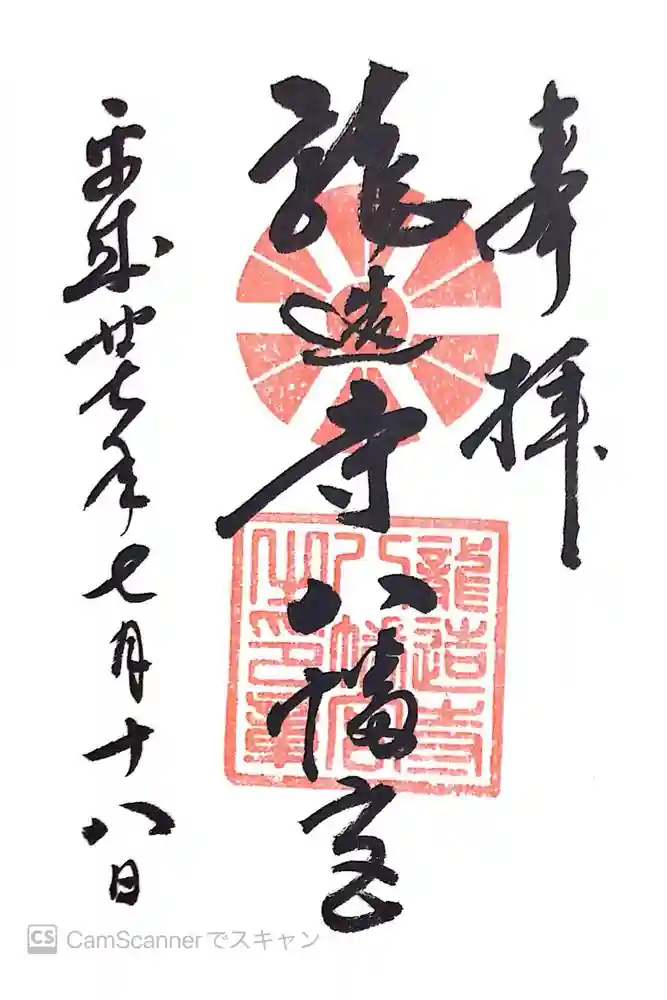 奉拝
龍造寺八幡宮
龍造寺
八幡宮
之印章
平成廿七年七月十八日
CS CamScannerでスキャン